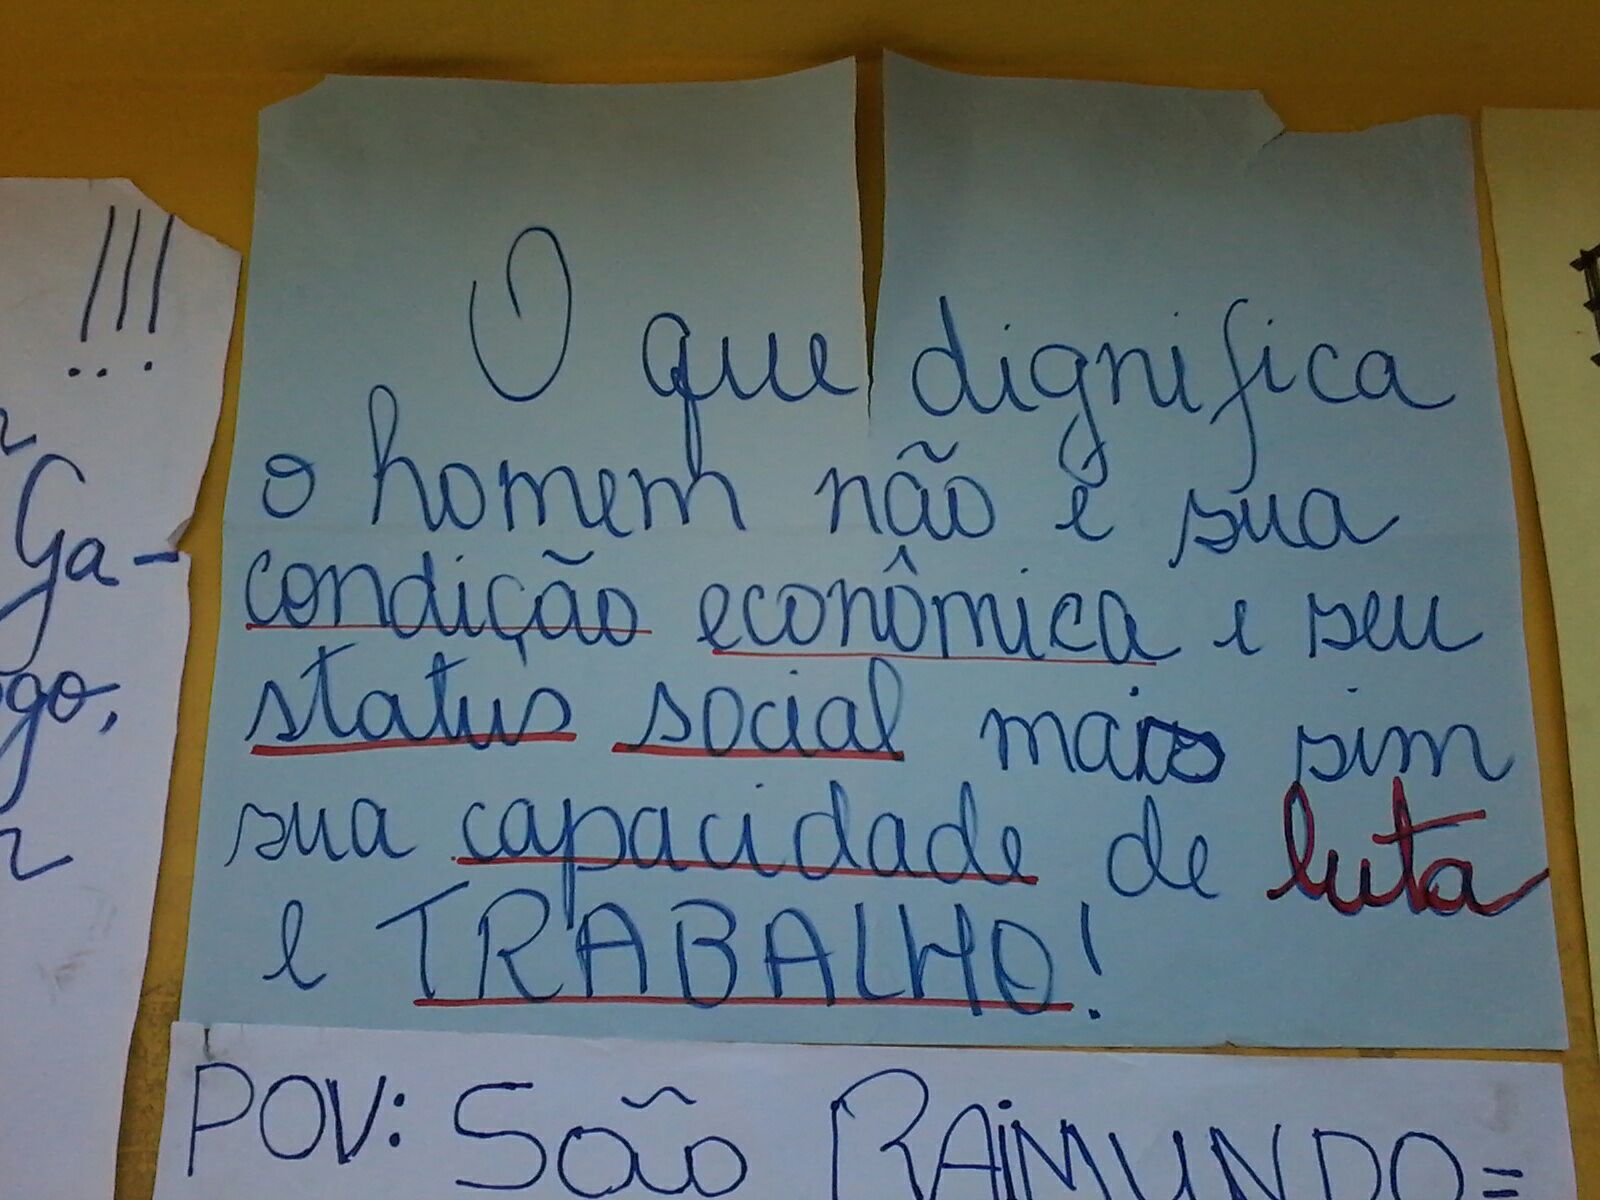 !!!
Ga-
O que dignifica
o homem não é sua
condição econômica e seu
status social mais sim
sua capacidade de luta
e TRABALHO!
POV: SÃO RAIMUNDO=